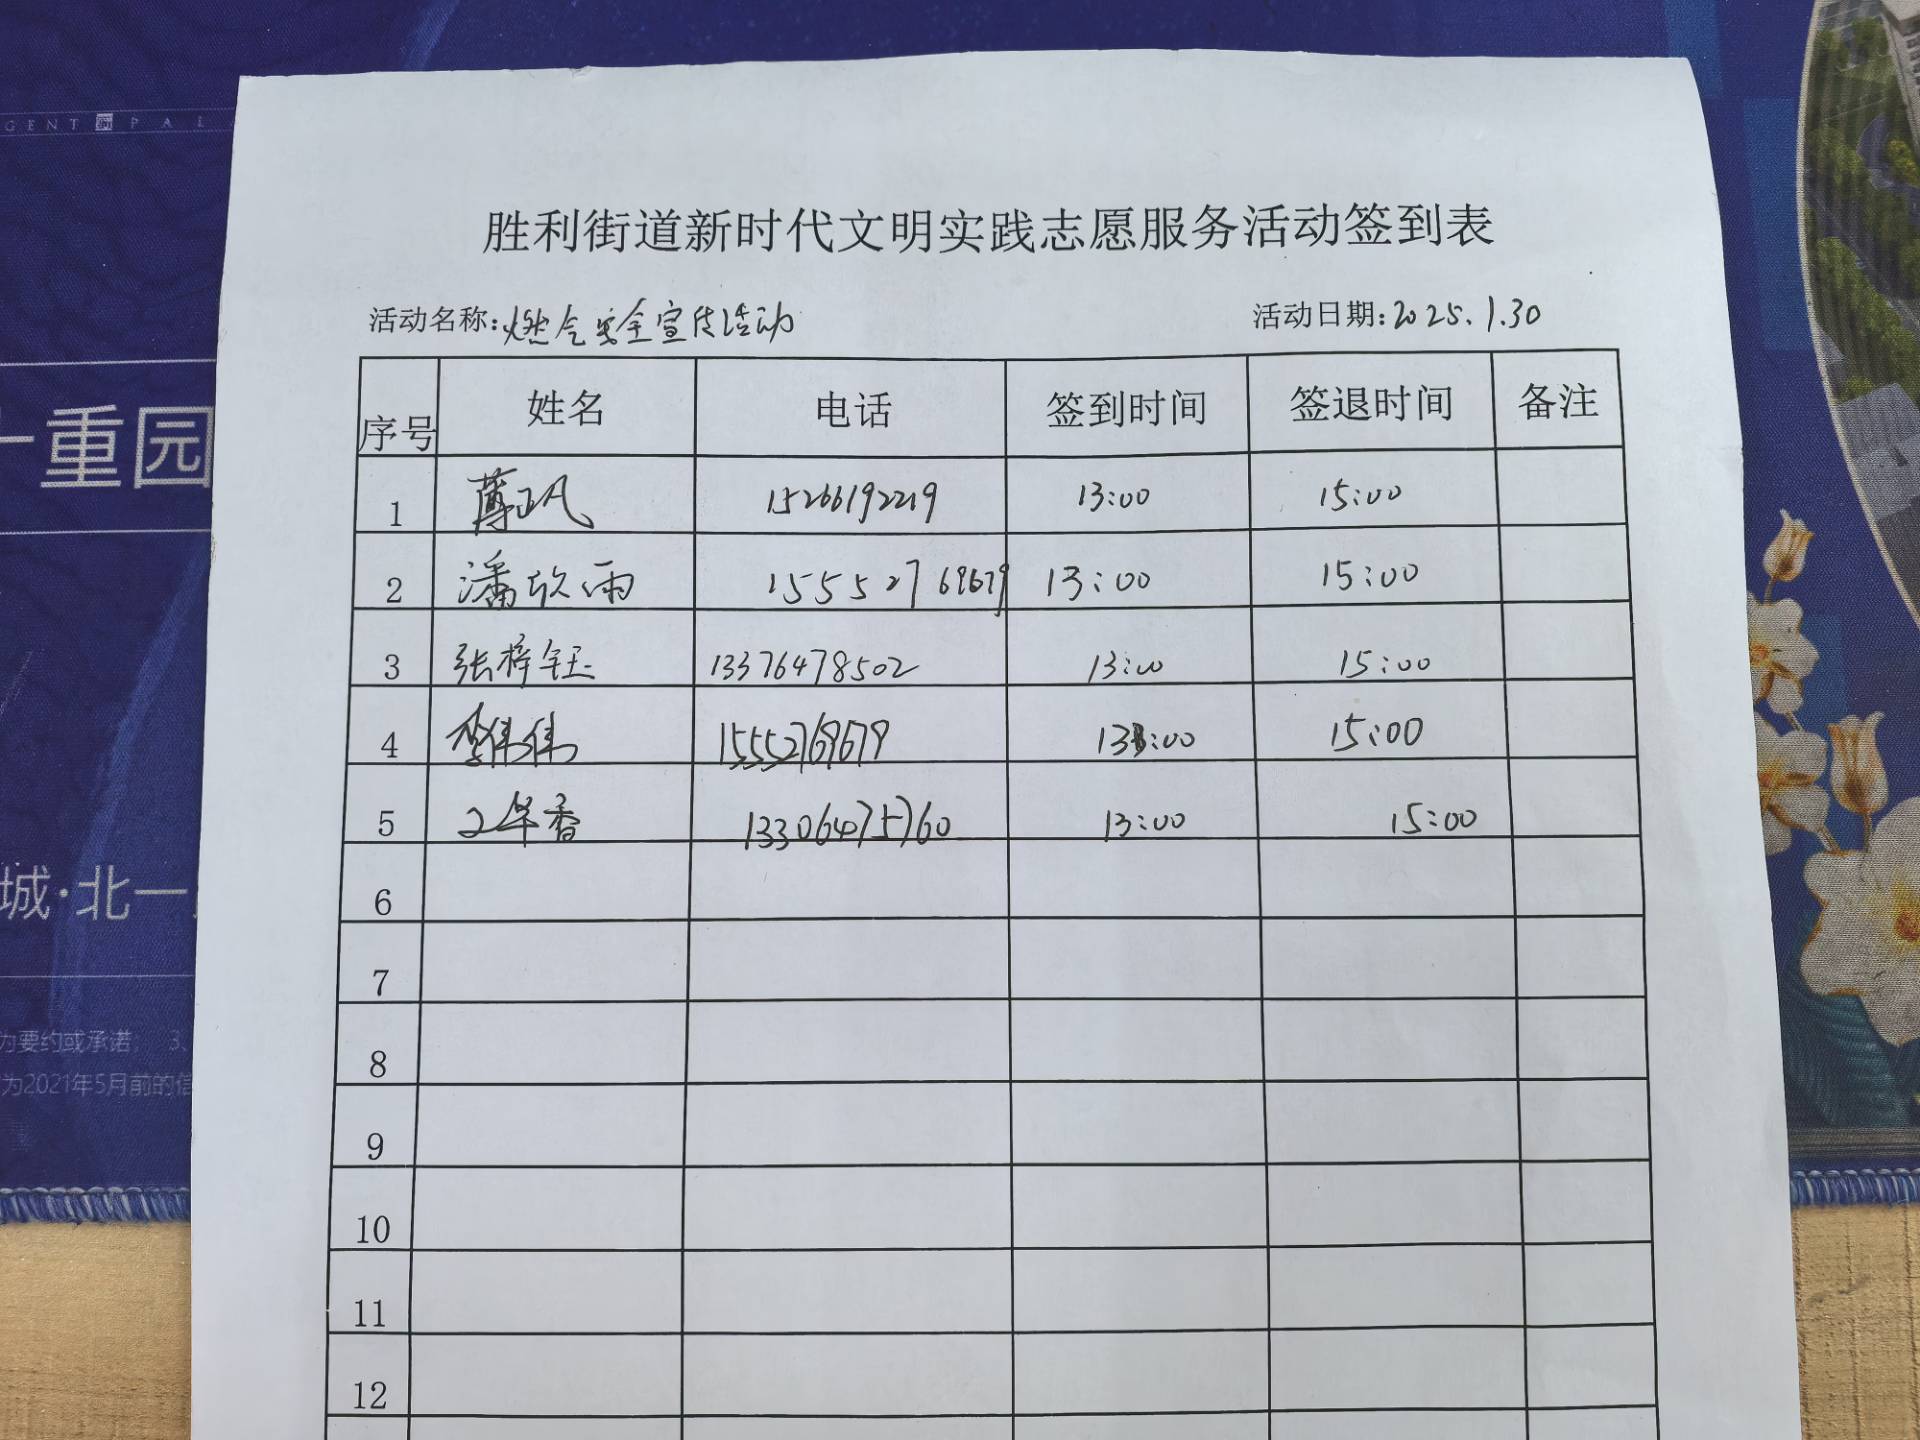 GENT PAL
十重园
城·北一
为要约或承诺; 3、
为2021年5月前的信
胜利街道新时代文明实践志愿服务活动签到表
活动名称:燃气安全宣传活动 活动日期:2025.1.30
序号 姓名 电话 签到时间 签退时间 备注
1 15266192219 13:00 15:00
2 潘欣雨 15552769679 13:00 15:00
3 张梓钰 13376478502 13:00 15:00
4 李伟伟 15552769679 13:00 15:00
5 13306475760 13:00 15:00
6
7
8
9
10
11
12